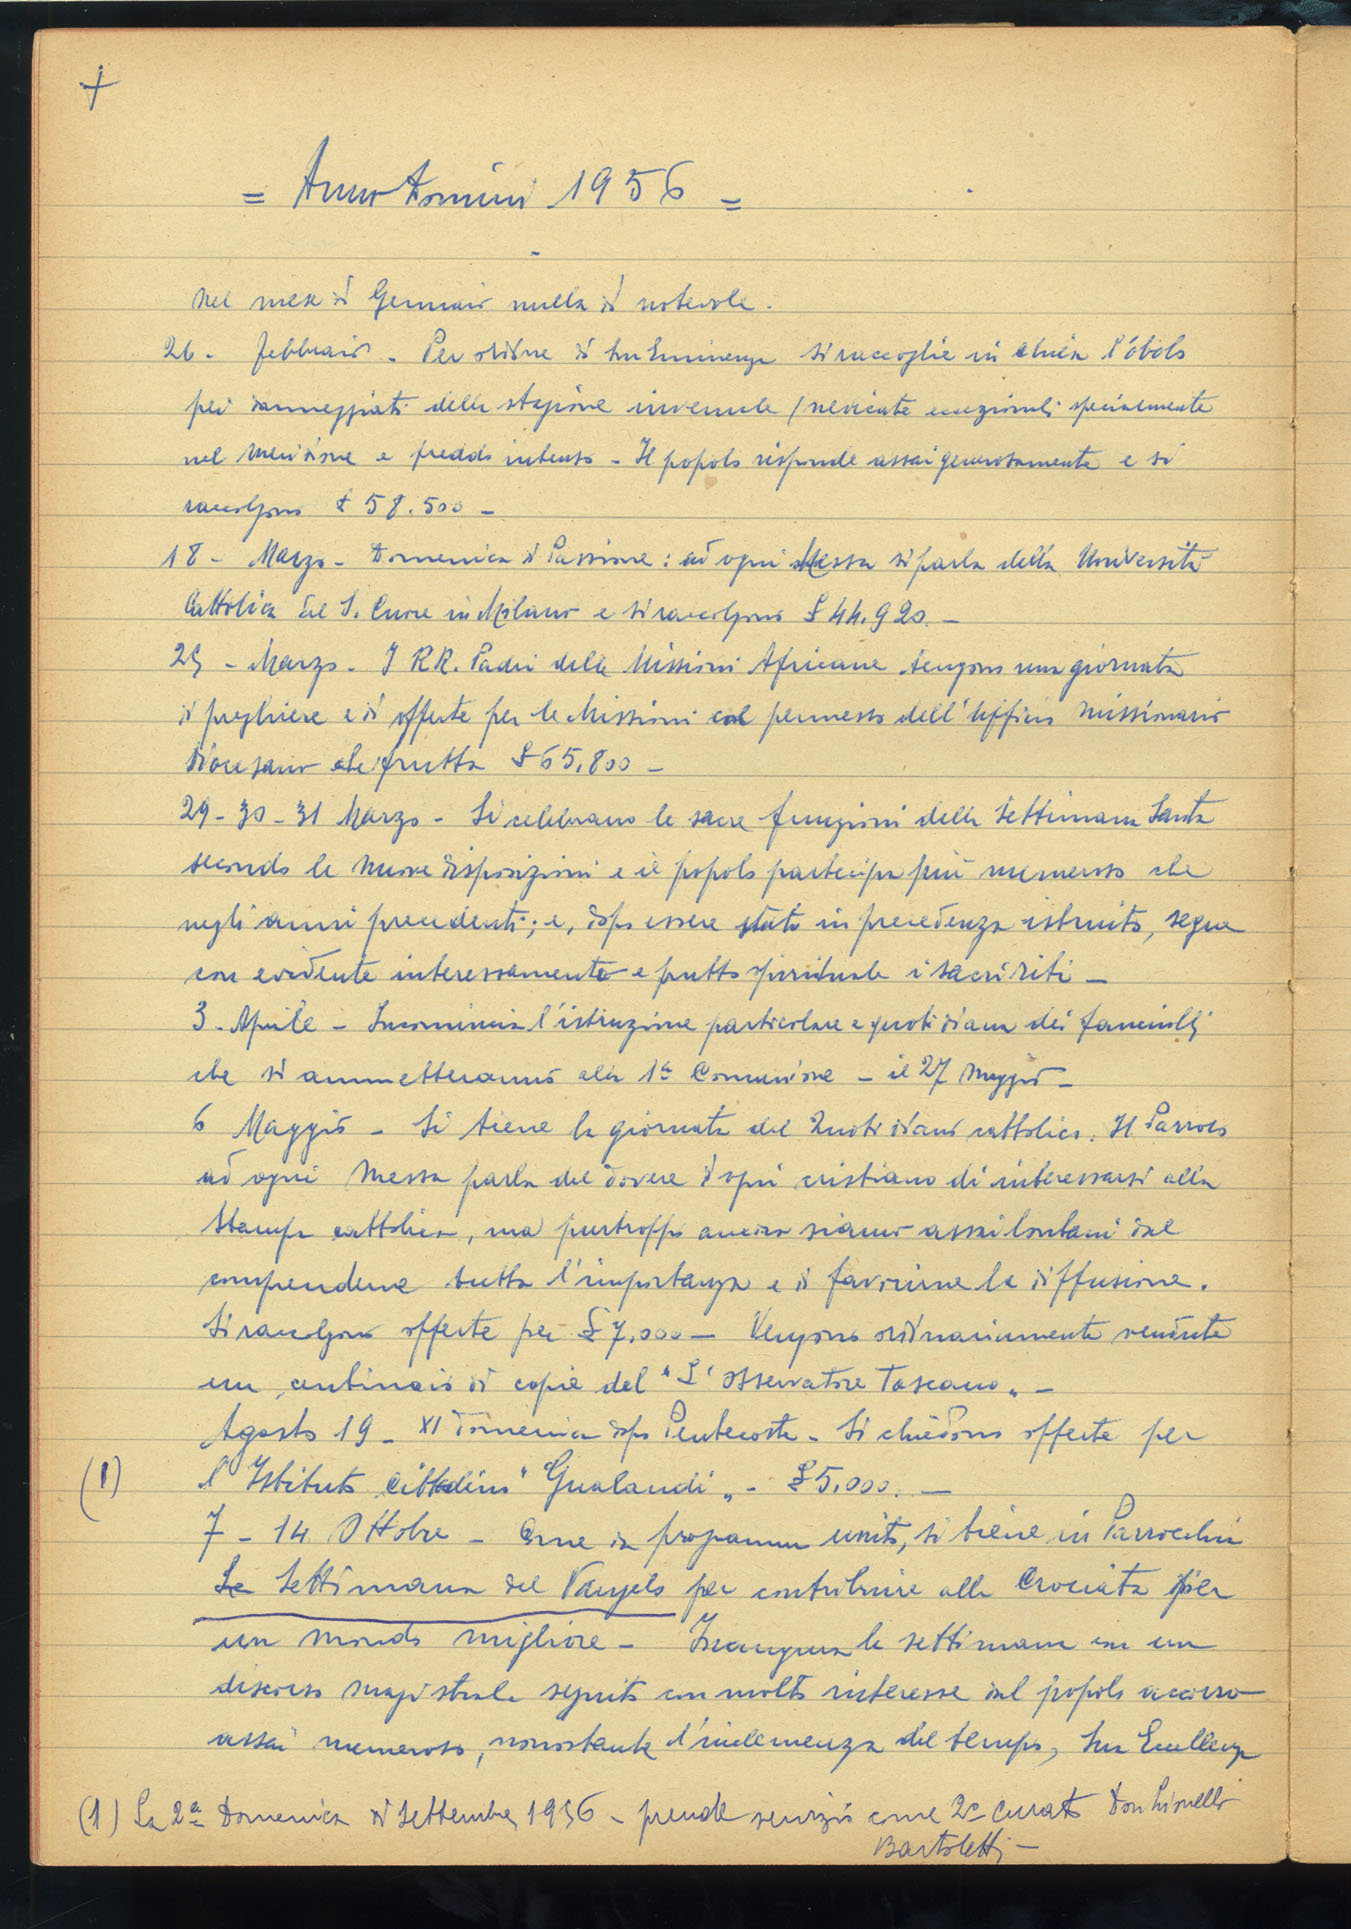 = Anno Domini 1956 =
Nel mese di Gennaio nulla di notevole.
26. Febbraio - Per ordine di Sua Eminenza si raccoglie in chiesa l'obolo
pei danneggiati della stagione invernale (nevicate eccezionali specialmente
nel meridione e freddo intenso - Il popolo risponde assai generosamente e si
raccolgono £ 58.500 -
18 - Marzo - Domenica di Passione: ad ogni Messa si parla della Università
Cattolica del S. Cuore in Milano e si raccolgono £ 44.920. -
25 - Marzo - I RR. Padri delle Missioni Africane tengono una giornata
di preghiere e di offerte per le Missioni col permesso dell'Ufficio Missionario
Diocesano che frutta £ 65.800 -
29 - 30 - 31 Marzo - Si celebrano le sacre funzioni della Settimana Santa
secondo le nuove disposizioni e il popolo partecipa più numeroso che
negli anni precedenti; e, dopo essere stato in precedenza istruito, segue
con evidente interessamento e frutto spirituale i sacri riti -
3 - Aprile - Incomincia l'istruzione particolare e quotidiana dei fanciulli
che si ammetteranno alla 1ª Comunione - il 27 Maggio -
6 Maggio - Si tiene la giornata del Quotidiano cattolico. Il Parroco
ad ogni Messa parla del dovere d'ogni cristiano di interessarsi alla
Stampa cattolica, ma purtroppo ancora siamo assai lontani dal
comprenderne tutta l'importanza e di favorirne la diffusione.
Si raccolgono offerte per £ 7.000 - Vengono ordinariamente vendute
un centinaio di copie del "L'Osservatore Toscano" -
Agosto 19 - XI Domenica dopo Pentecoste - Si chiedono offerte per
(1) l'Istituto cittadino "Gualandi" - £ 5.000. -
7 - 14 Ottobre - Come da programma unito, si tiene in Parrocchia
La Settimana del Vangelo per contribuire alla Crociata per
un mondo migliore - Inaugura la settimana con un
discorso magistrale seguito con molto interesse dal popolo accorso
assai numeroso, nonostante l'inclemenza del tempo, Sua Eccellenza
(1) La 2ª Domenica di Settembre 1956 - prende servizio come 2º curato Don Lionello
Bartoletti -